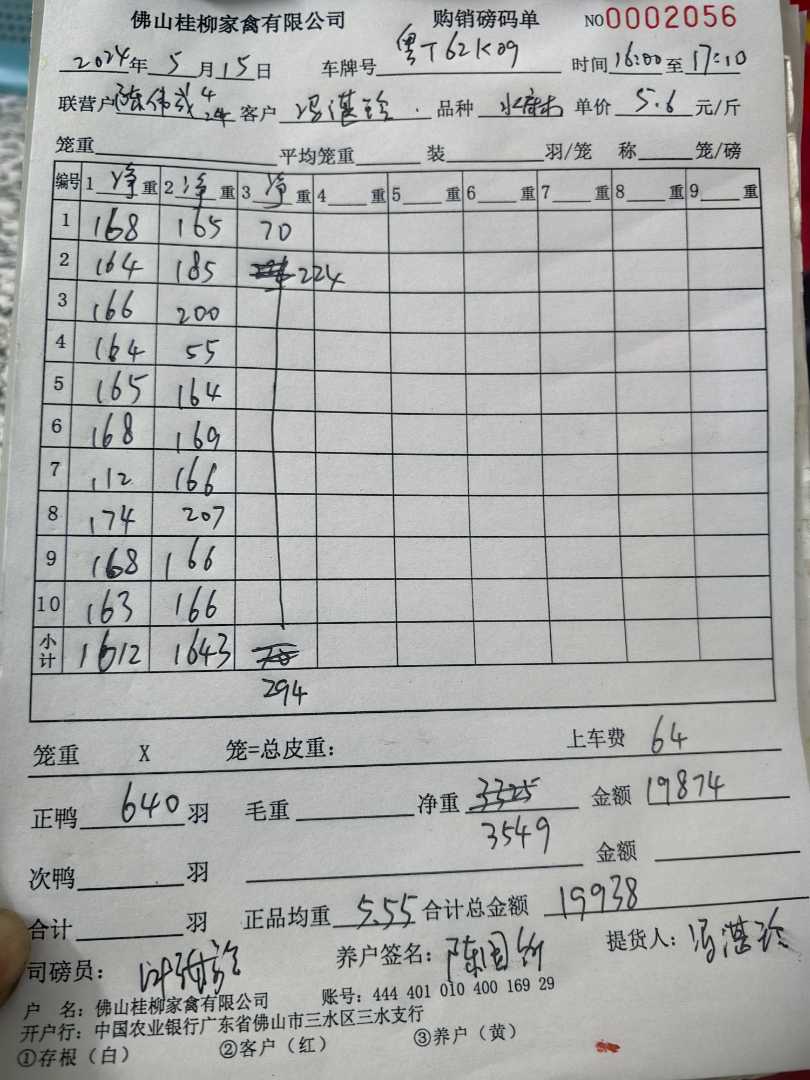 佛山桂柳家禽有限公司 购销磅码单 NO0002056
2024年5月15日 车牌号 粤T62K09 时间16:00至17:10
联营户 陈伟成 4 24 客户 冯湛珍 品种 单价 5.6 元/斤
笼重 平均笼重 装 羽/笼 称 笼/磅
编号 1 净 重 2 净 重 3 净 重 4 重 5 重 6 重 7 重 8 重 9 重
1 168 165 70
2 164 185 224
3 166 200
4 164 55
5 165 164
6 168 169
7 112 166
8 174 207
9 168 166
10 163 166
小计 1612 1643 70
294
笼重 X 笼=总皮重: 上车费 64
正鸭 640 羽 毛重 净重 3325 金额 19874
3549
次鸭 羽 金额
合计 羽 正品均重 5.55 合计总金额 19938
司磅员: 养户签名: 陈 提货人: 冯湛珍
户 名: 佛山桂柳家禽有限公司 账号: 444 401 010 400 169 29
开户行: 中国农业银行广东省佛山市三水区三水支行
①存根（白） ②客户（红） ③养户（黄）